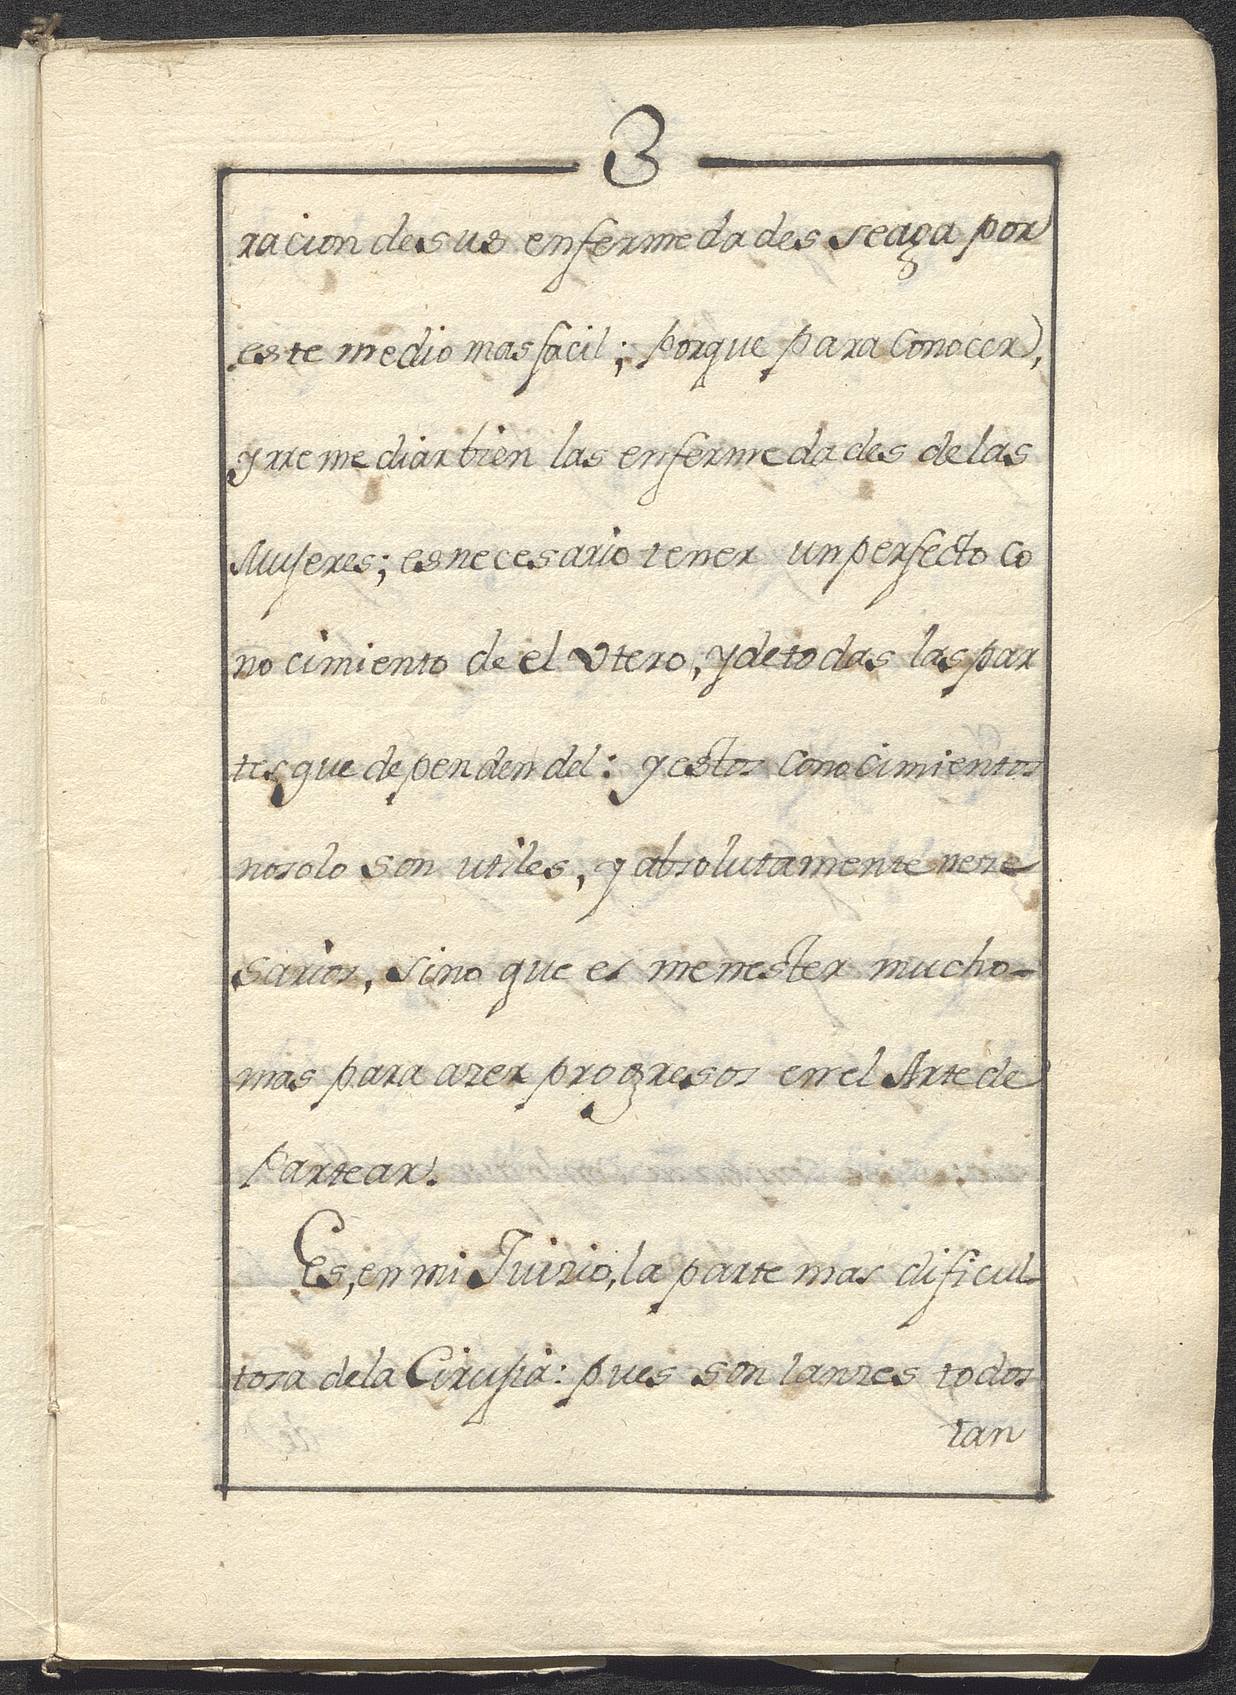 3
racion de sus enfermedades se aga por
este medio mas facil; porque para Conocer,
y rremediar bien las enfermedades de las
Mujeres; es necesario tener un perfecto Co
nocimiento de el Utero, y de todas las par
tes que dependen del: y estos Conocimientos
no solo son utiles, y absolutamente neze
sarios, sino que es menester mucho-
mas para azer progresos en el Arte de
Partear.
Es, en mi Juizio, la parte mas dificul-
tosa de la Cirujia: pues son lanzes todos
tan